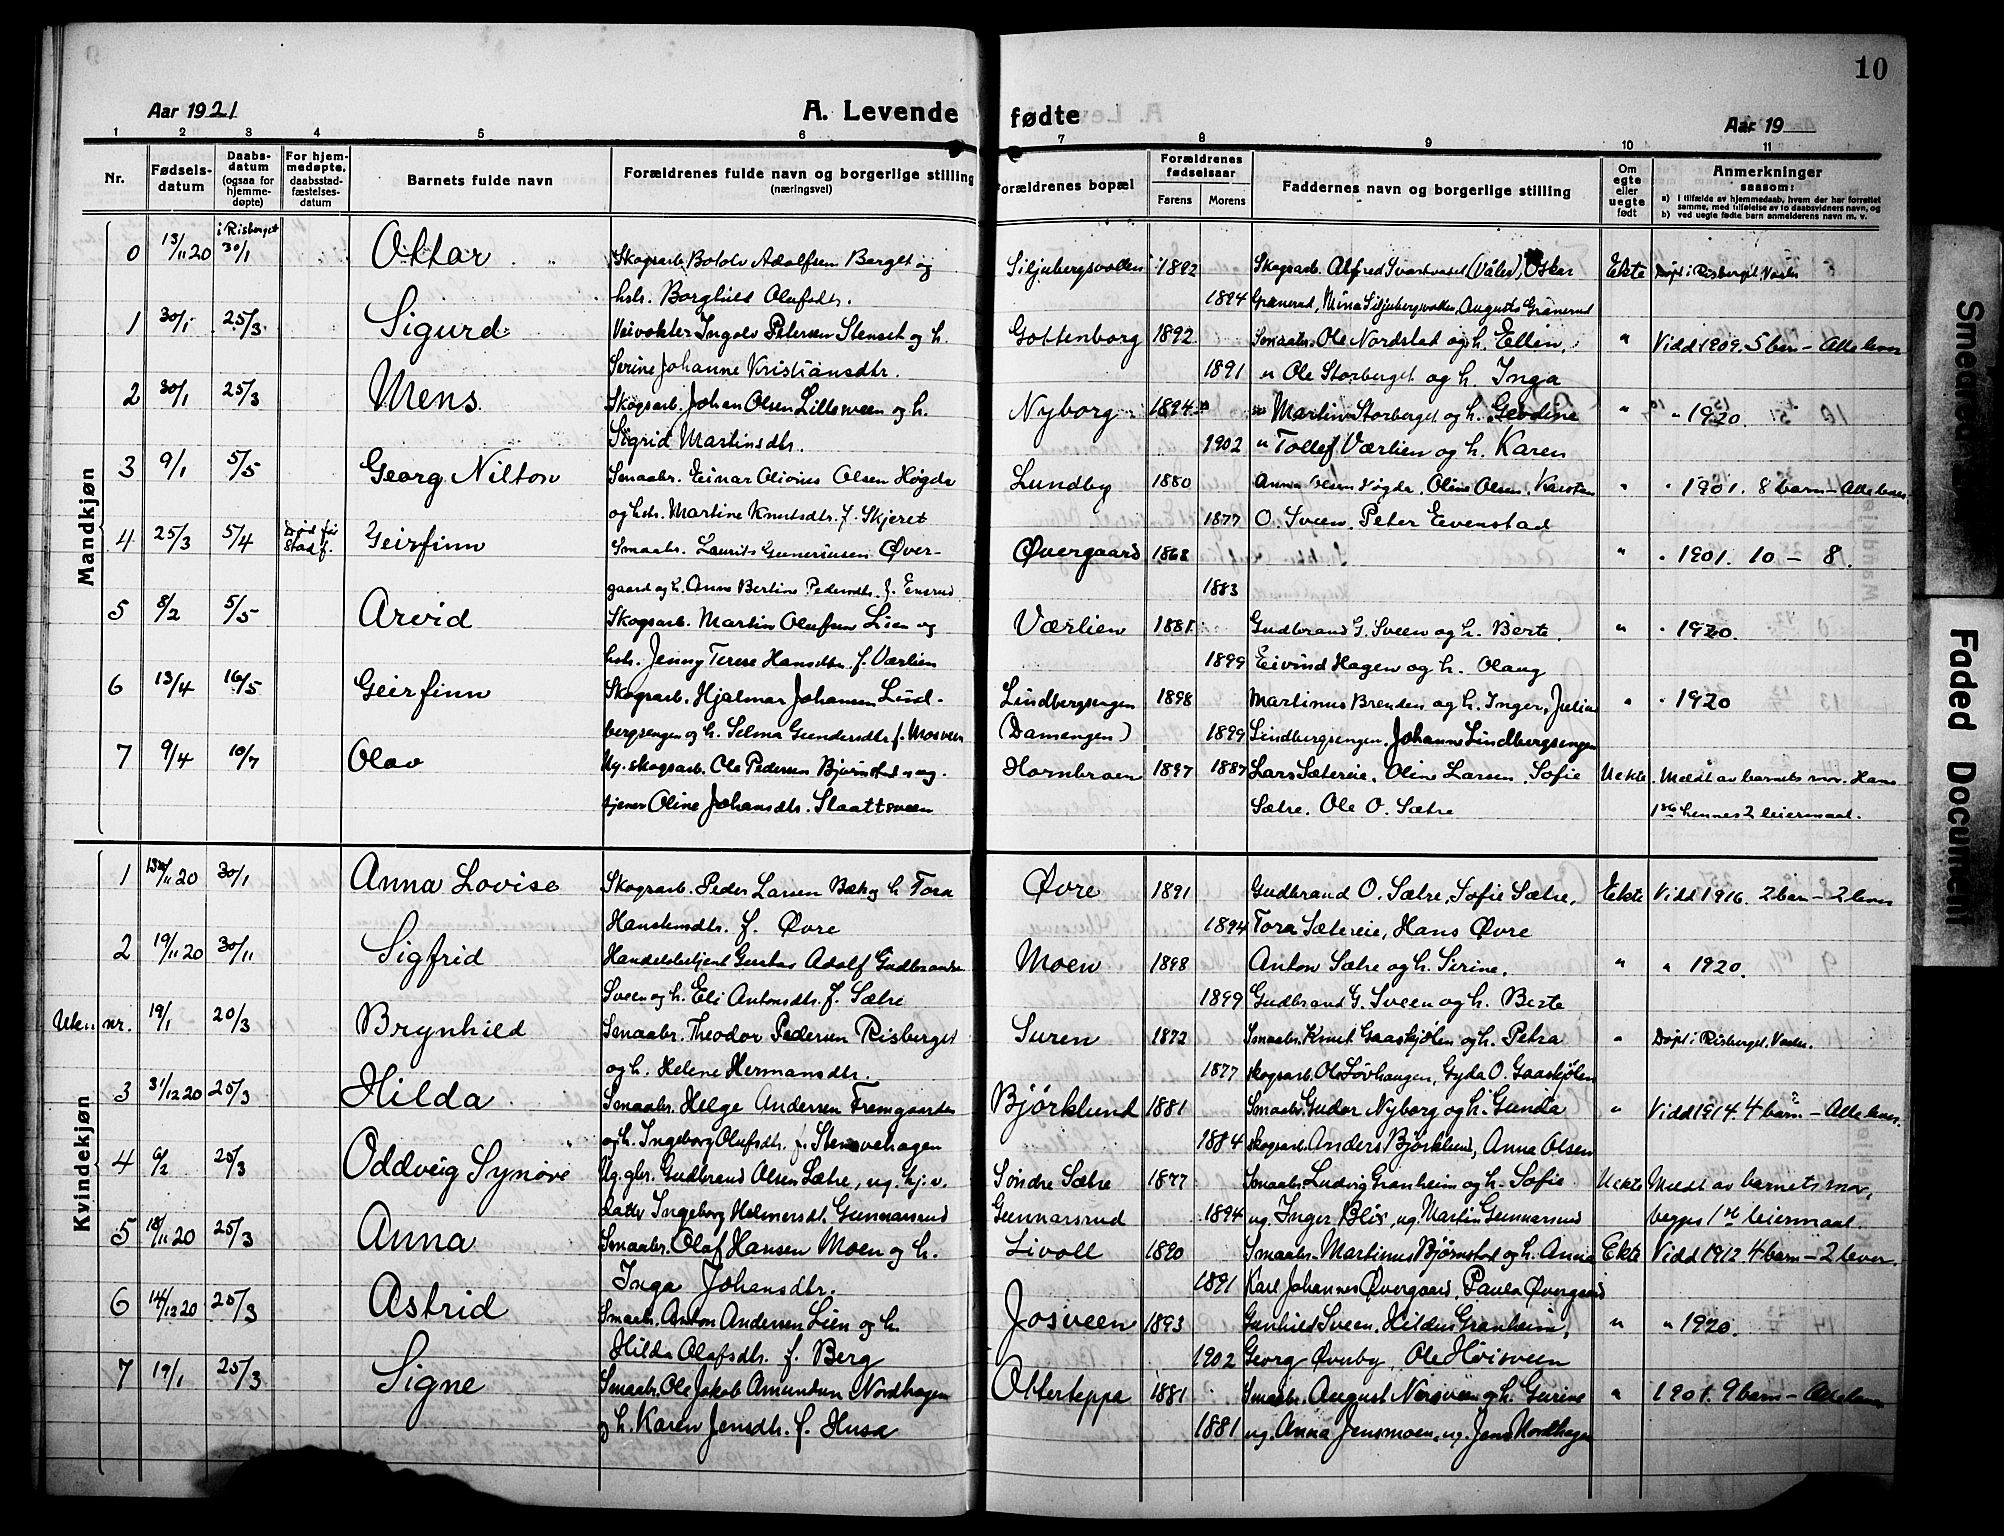 10
Aar 1921
A. Levende fødte
Aar 19
1 2 3 4 5 6 7 8 9 10 11
Nr.
Fødsels-
datum
Daabs-
datum
(ogsaa for
hjemme-
døpte)
For hjem-
medøpte,
daabsstad-
fæstelses-
datum
Barnets fulde navn
Forældrenes fulde navn og borgerlige stilling
(næringsvei)
Forældrenes bopæl
Forældrenes
fødselsaar
Farens Morens
Faddernes navn og borgerlige stilling
Om
egte
eller
uegte
født
Anmerkninger
saasom:
a) I tilfælde av hjemmedaab, hvem der har forrettet
samme, med tilføielse av to daabsvidners navn, og
b) ved uegte fødte barn anmelderens navn m. v.
Mandkjøn
i Risberget
0 13/11 20 30/1 Oktar Skogsarb. Botolv Adolfsen Berget og Siljubergsvollen 1892 Skogsarb. Alfred Svartvasel (Våler), Oskar Ekte Døpt i Risberget, Vaaler
hstr. Borghild Olufsdtr. 1894 Grænerud, Mina Siljubergsvollen, Augusta Grænerud
1 30/1 25/3 Sigurd Veivokter Ingolv Petersen Stenset og h. Gottenborg 1892 Smaabr. Ole Nordstad og h. Ellen, " Vidd 1909. 5 barn – Alle lever
Serine Johanne Kristiansdtr. 1891 " Ole Storberget og h. Inga
2 30/1 25/3 Mens Skogsarb. Johan Olsen Lillesveen og h. Nyborg 1894 " Martin Storberget og h. Geodine " " 1920.
Sigrid Martinsdtr. 1902 " Tollef Værlien og h. Karen
3 9/1 5/5 Georg Nilton Smaabr. Einar Olivius Olsen Høgda Lundby 1880 Anna Olsen Høgda, Oline Olsen, Karsten " " 1901. 8 barn – Alle lever
og hstr. Martine Knutsdtr. f. Skjeret 1877 O. Sveen, Peter Evenstad
4 25/3 5/4 Død før stadf. Geirfinn Smaabr. Laurits Gunerinsen Øver- Øvergaard 1868 " " 1901. 10 – 8.
gaard og h. Anne Bertine Pedersdtr. f. Ensrud 1883
5 8/2 5/5 Arvid Skogsarb. Martin Olufsen Lien og Værlien 1881 Gudbrand G. Sveen og h. Berte, " " 1920.
hstr. Jenny Terese Hansdtr. f. Værlien 1899 Eivind Hagen og h. Olaug
6 13/4 16/5 Geirfinn Skogsarb. Hjalmar Johansen Lind- Lindbergsengen 1898 Martinus Brenden og h. Inger, Julius " " 1920
bergsengen og h. Selma Gundersdtr. f. Mosveen (Damengen) 1899 Lindbergsengen, Johanne Lindbergsengen
7 9/4 10/7 Olav Ug. skogsarb. Ole Pedersen Bjørnstad og ug. Hornbroen 1897 1887 Lars Sætereie, Oline Larsen, Sofie Uekte Meldt av barnets mor. Hans
tjener Oline Johansdtr. Slaattsveen Sætre, Ole O. Sætre 1ste hennes 2 leiermaal.
Kvindekjøn
1 13/11 20 30/1 Anna Lovise Skogsarb. Peder Larsen Bæk og h. Tora Øvre 1891 Gudbrand O. Sætre, Sofie Sætre, Ekte Vidd 1916. 2 barn – 2 lever
Hanstensdtr. f. Øvre 1894 Tora Sætereie, Hans Øvre
2 19/11 20 30/11 Sigfrid Handelsbetjent Gustav Adolf Gudbrandsen Moen 1898 Anton Sætre og h. Serine, " " 1920.
Sveen og h. Eli Antonsdtr. f. Sætre 1899 Gudbrand G. Sveen og h. Berte
Uten nr. 19/1 20/3 Brynhild Smaabr. Theodor Pedersen Risberget Suren 1872 Smaabr. Knut Gaaskjølen og h. Petra " Døpt i Risberget, Vaaler.
og h. Helene Hermansdtr. 1877 skogsarb. Ole Løvhaugen, Gyda O. Gaaskjølen
3 31/12 20 25/3 Hilda Smaabr. Helge Andersen Fremgaarden Bjørklund 1881 Smaabr. Gudor Nyborg og h. Gunda " Vidd 1914. 4 barn – Alle lever.
og h. Ingeborg Olufsdtr. f. Stensvehagen 1884 skogsarb. Anders Bjørklund, Anna Olsen
4 6/2 25/3 Oddveig Synøve Ug. gbr. Gudbrand Olsen Sætre, ug. hj.v. Søndre Sætre 1877 Smaabr. Ludvig Granheim og h. Sofie Uekte Meldt av barnets mor,
datter Ingeborg Helmersdt. Gunnarsrud Gunnarsrud 1894 ug. Inger Blix, ug. Martin Gunnarsrud begges 1ste leiermaal.
5 18/11 20 25/3 Anna Smaabr. Olaf Hansen Moen og h. Livoll 1890 Smaabr. Martinus Bjørnstad og h. Anna Ekte Vidd 1912. 4 barn – 2 lever.
Inga Johansdtr. 1891 Karl Johannes Øvergaard, Paula Øvergaard
6 14/12 20 25/3 Astrid Smaabr. Anton Andersen Lien og h. Josveen 1893 Gunhild Sveen, Hildur Granheim, " " 1920.
Hilda Olafsdtr. f. Berg 1902 Georg Øvreby, Ole Høisveen
7 19/1 25/3 Signe Smaabr. Ole Jakob Amundsen Nordhagen Otterteppa 1881 Smaabr. August Norsveen og h. Gurine " 1901. 9 barn – Alle lever
og h. Karen Jensdtr. f. Husa 1881 ug. Anna Jensmoen, ug. Jens Nordhagen
Smearede
Faded Document